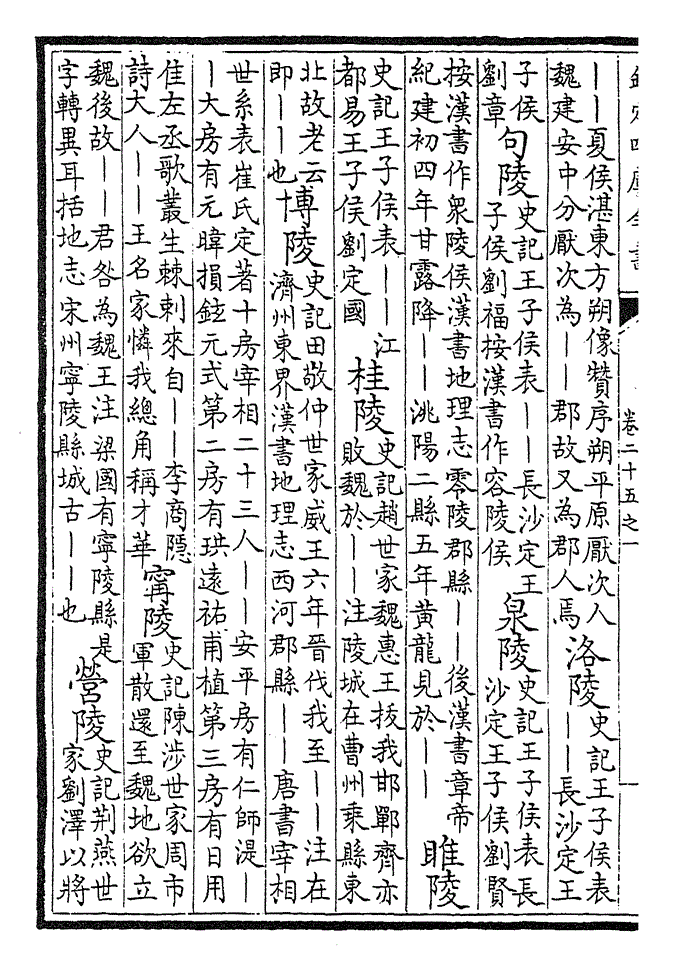 欽定四庫全書
卷二十五之一
——夏侯湛東方朔像贊序朔平原厭次人
魏建安中分厭次為——郡故又為郡人焉
洛陵
史記王子侯表
——長沙定王
子侯
劉章
句陵
史記王子侯表——長沙定王
子侯劉福按漢書作容陵侯
泉陵
史記王子侯表長
沙定王子侯劉賢
按漢書作衆陵侯漢書地理志零陵郡縣——後漢書章帝
紀建初四年甘露降——洮陽二縣五年黄龍見於——
睢陵
史記王子侯表——江
都易王子侯劉定國
桂陵
史記趙世家魏惠王拔我邯鄲齊亦
敗魏於——注陵城在曹州乗縣東
北故老云
即——也
博陵
史記田敬仲世家威王六年晉伐我至——注在
濟州東界漢書地理志西河郡縣——唐書宰相
世系表崔氏定著十房宰相二十三人——安平房有仁師湜—
—大房有元暐損鉉元式第二房有珙遠祐甫植第三房有日用
隹左丞歌叢生棘刺來自——李商隱
詩大人——王名家憐我總角稱才華
甯陵
史記陳涉世家周市
軍散還至魏地欲立
魏後故——君咎為魏王注梁國有寧陵縣是
字轉異耳括地志宋州寧陵縣城古——也
營陵
史記荆燕世
家劉澤以將